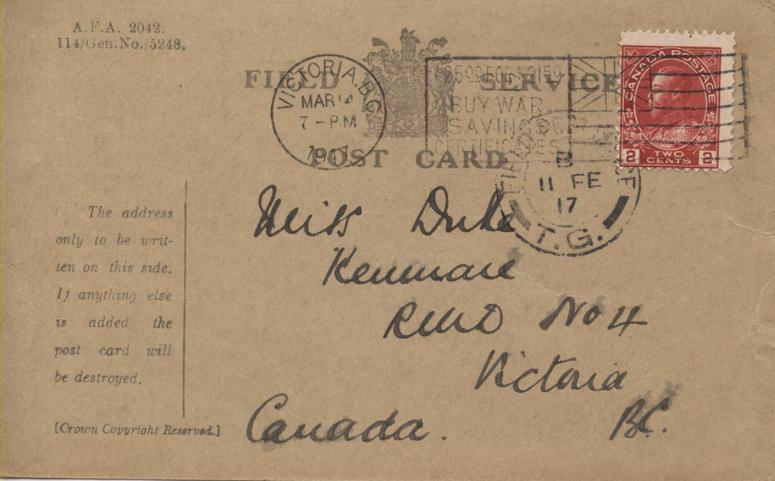 A.F.A. 2042.
114/Gen.No./5248.
FIELD SERVICE
POST CARD
VICTORIA, B.C.
MAR 14
7 - PM
1917
BUY WAR
SAVINGS
CERTIFICATES
CANADA POSTAGE
2 TWO CENTS 2
11 FE
17
T.G.
The address
only to be writ-
ten on this side.
If anything else
is added the
post card will
be destroyed.
[Crown Copyright Reserved.]
Miss Duke
Kenmare
RMD No 4
Victoria
Canada. BC.